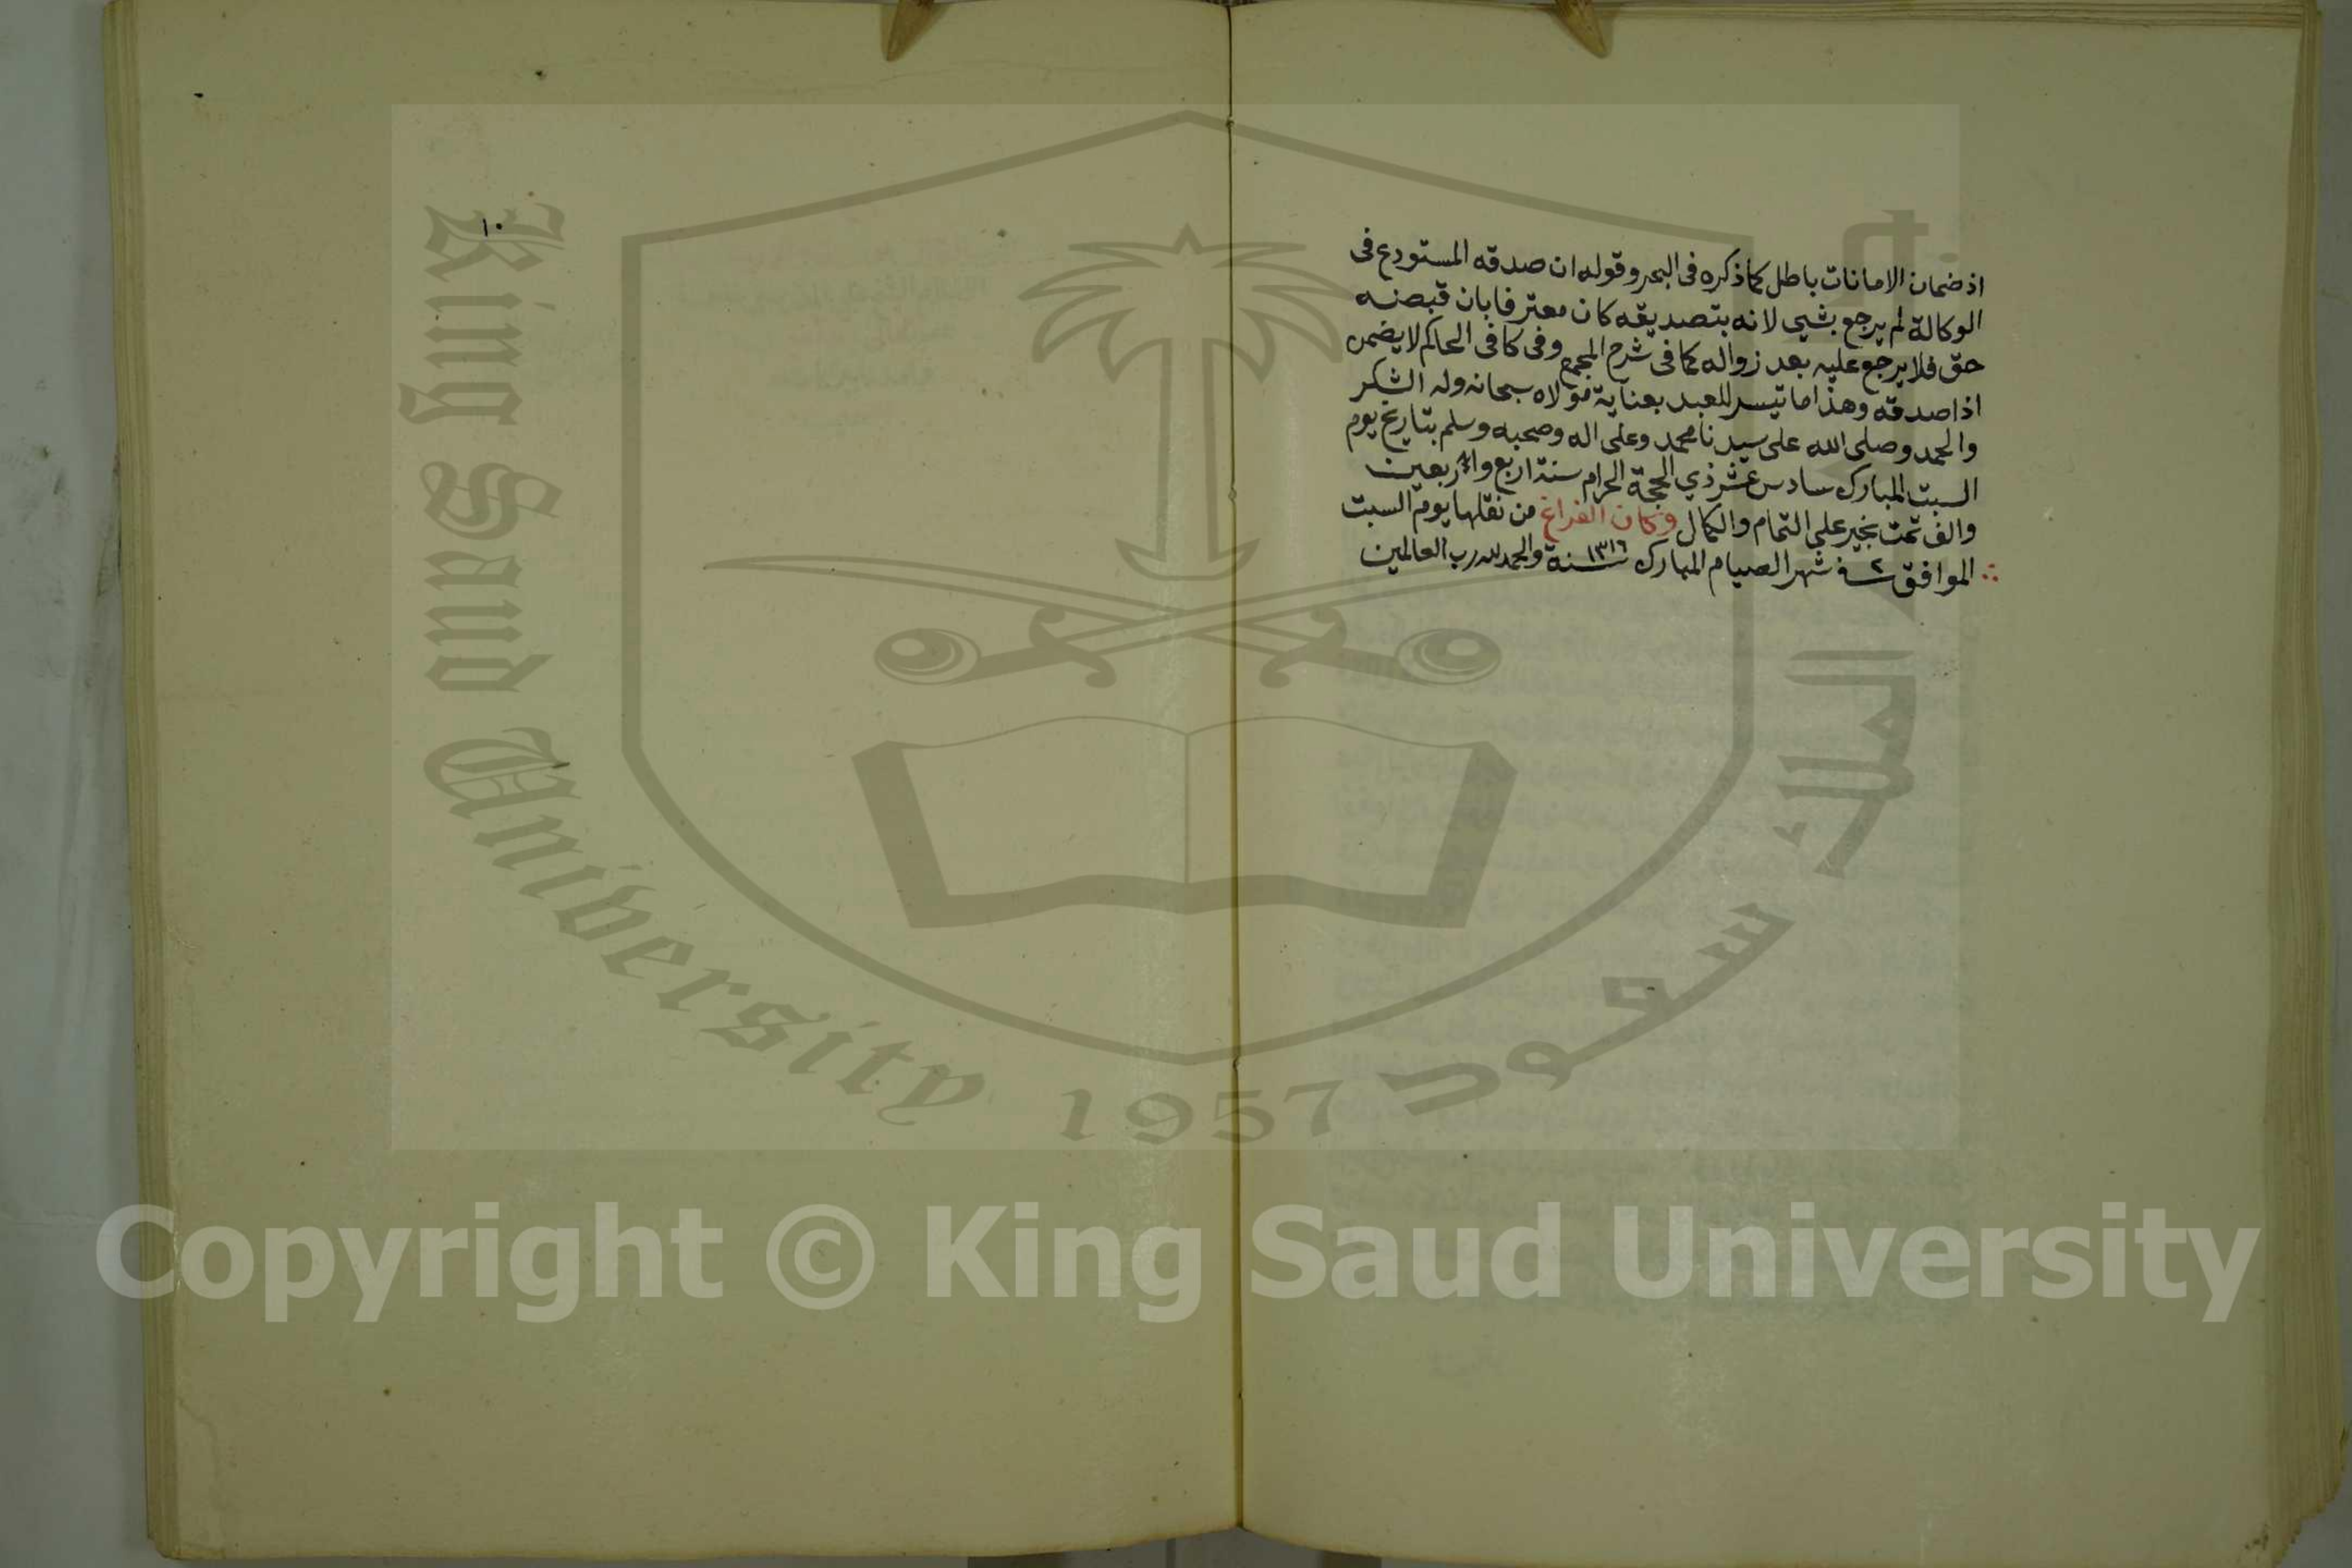 اذ ضمان الامانات باطل كما ذكره فى البحر وقوله ان صدقه المستودع فى
الوكالة لم يرجع بشيى لانه بتصديقه كان معترفا بان قبضه
حق فلا يرجع عليه بعد زواله كما فى شرح المجمع وفى كافى الحاكم لا يضمن
اذا صدقه وهذا ما تيسر للعبد بعناية مولاه سبحانه وله الشكر
والحمد وصلى الله على سيدنا محمد وعلى اله وصحبه وسلم بتاريخ يوم
السبت المبارك سادس عشر ذي الحجة الحرام سنة اربع واربعين
والف تمت بخير على التمام والكمال وكان الفراغ من نقلها يوم السبت
الموافق ٢ شهر الصيام المبارك سنة ١٣١٦ والحمد لله رب العالمين
١٠
King Saud University 1957
Copyright © King Saud University